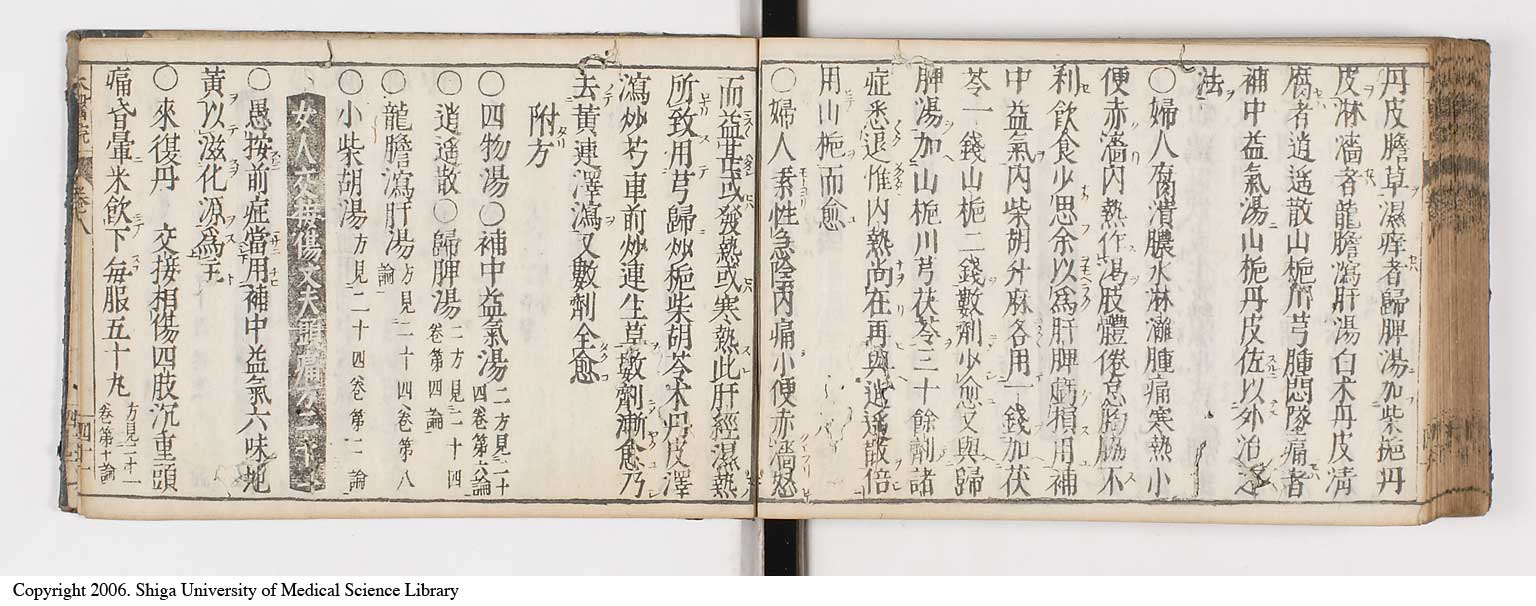 丹皮膽草濕痒者歸脾湯加柴梔丹
皮淋濇者龍膽瀉肝湯白木丹皮淸
腐者逍遥散山梔川芎腫悶墜痛者
補中益氣湯山梔丹皮佐以外治之
法
〇婦人腐潰膿水淋漓腫痛寒熱小
便赤濇内熱作渴肢體倦怠胸脇不
利飲食少思余以爲肝脾虧損用補
中益氣内柴胡升麻各用一錢加茯
苓一錢山梔二錢數劑少愈又與歸
脾湯加山梔川芎茯苓三十餘劑諸
症悉退惟内熱尚在再與逍遥散倍
用山梔而愈
〇婦人素性急陰内痛小便赤濇怒
而益甚或發熱或寒熱此肝經濕熱
所致用芎歸炒梔柴胡苓术丹皮澤
瀉炒芍車前炒連生草數劑漸愈乃
去黄連澤瀉又數劑全愈
附方
〇四物湯〇補中益氣湯二方見二十四卷第六論
〇逍遥散〇歸脾湯二方見二十四卷第四論
〇龍膽瀉肝湯方見二十四卷第八論
〇小柴胡湯方見二十四卷第二論
女人交接傷丈夫頭痛方
〇愚按前症當用補中益氣六味地
黄以滋化源爲主
〇來復丹 交接相傷四肢沉重頭
痛昏暈米飲下毎服五十丸方見二十一卷第十論
Copyright 2006. Shiga University of Medical Science Library